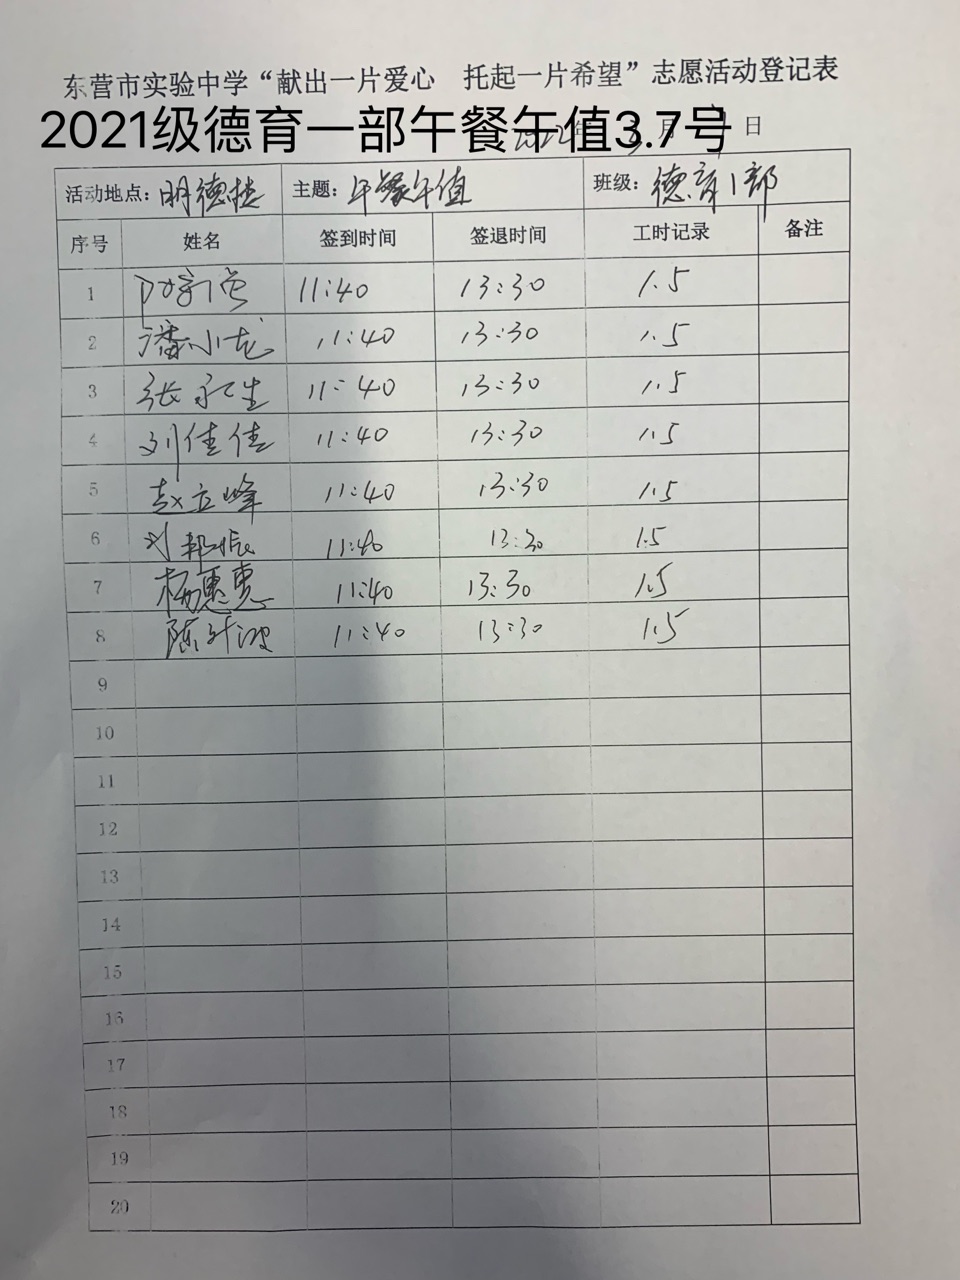 东营市实验中学“献出一片爱心 托起一片希望”志愿活动登记表
2021级德育一部午餐午值3.7号
2022年 3月 日
活动地点：明德楼 主题：午餐午值 班级：德育1部
序号 姓名 签到时间 签退时间 工时记录 备注
1 11:40 13:30 1.5
2 潘小龙 11:40 13:30 1.5
3 张永生 11:40 13:30 1.5
4 刘佳佳 11:40 13:30 1.5
5 赵立峰 11:40 13:30 1.5
6 刘 11:40 13:30 1.5
7 杨惠惠 11:40 13:30 1.5
8 陈 11:40 13:30 1.5
9
10
11
12
13
14
15
16
17
18
19
20